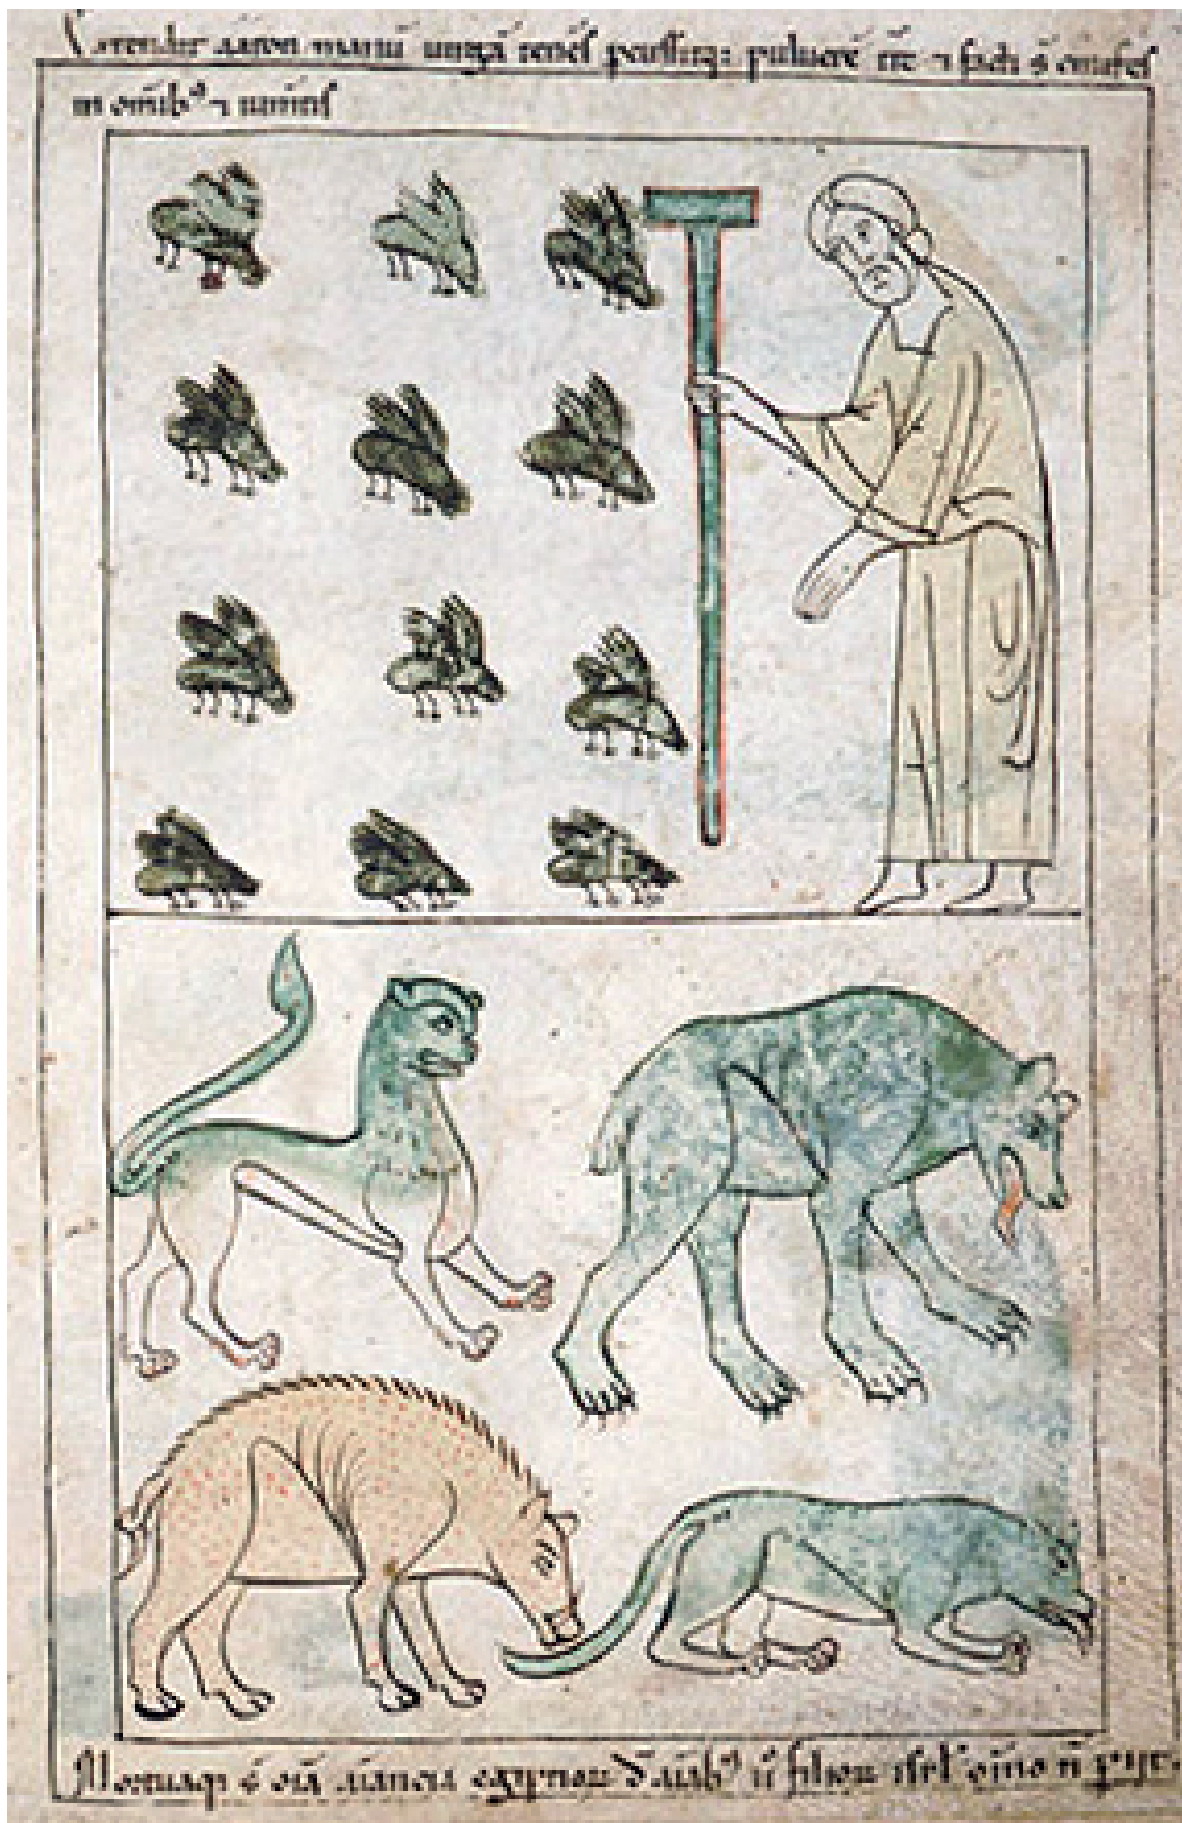 Extendit aaron manū uirgā tenēs pcussitqꝫ puluerē t̄re ⁊ facti s̄ cinifes
in omībꝰ ⁊ iumt̄is
Mortuaqꝫ s̄ oīā aīancia egyptioꝝ d̄ aīabꝰ ū filioꝝ isrl̓ oīno n̄